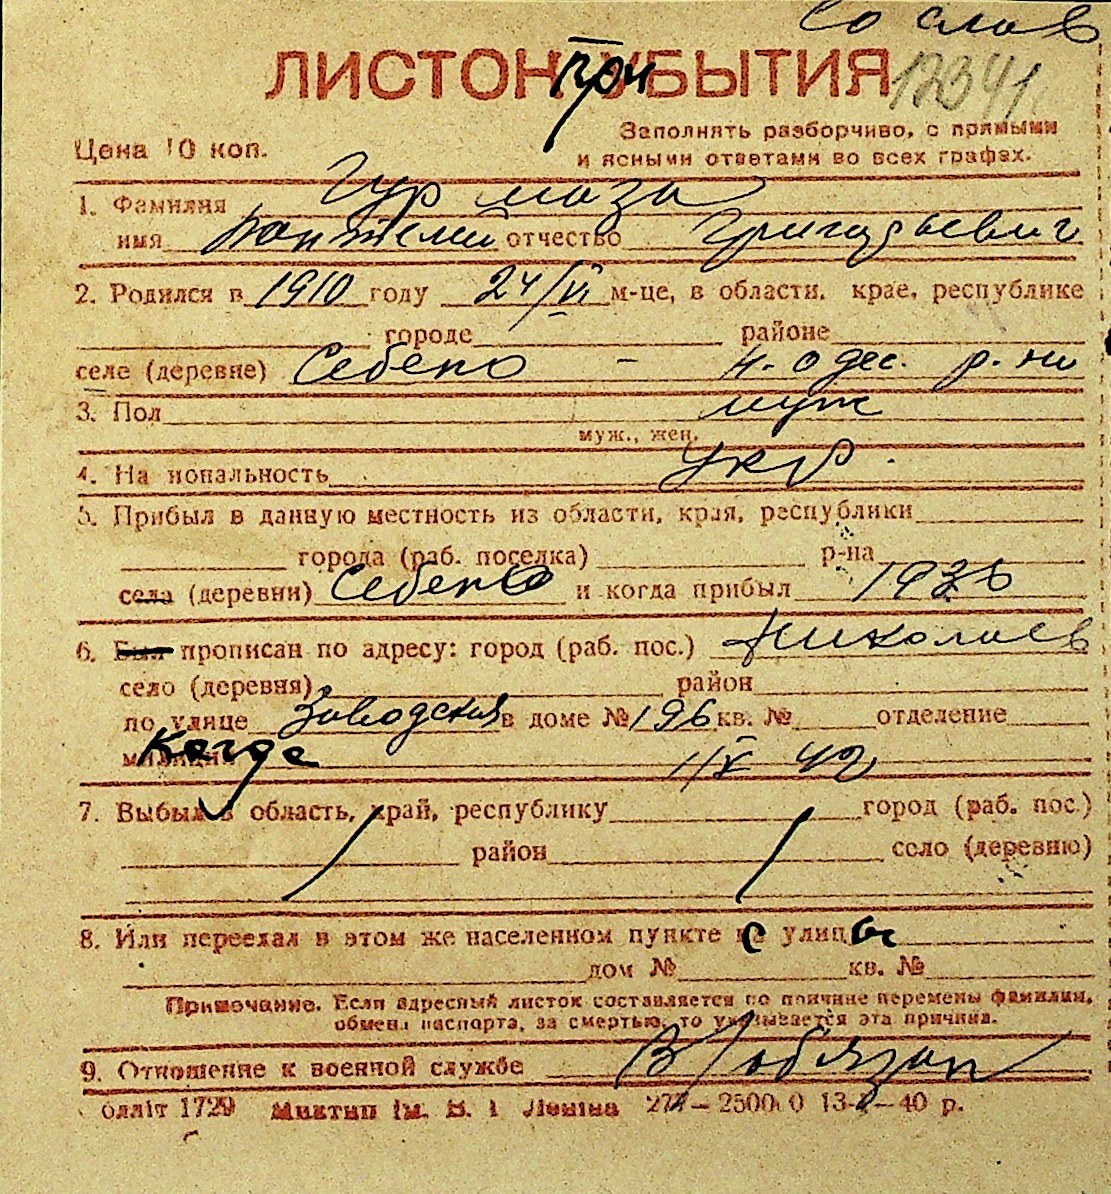 Со слов
ЛИСТОК При УБЫТИЯ 12341
Цена 10 коп. Заполнять разборчиво, с прямыми
и ясными ответами во всех графах.
1. Фамилия Гурмаза
имя Пантелей отчество Григорьевич
2. Родился в 1910 году 24/VI м-це, в области, крае, республике
городе районе
селе (деревне) Себено - Н. Одес. р-ни
3. Пол муж
муж., жен.
4. На иональность укр.
5. Прибыл в данную местность из области, края, республики
города (раб. поселка) р-на
села (деревни) Себено и когда прибыл 1936
6. Был прописан по адресу: город (раб. пос.) Николаев
село (деревня) район
по улице Заводская в доме № 196 кв. № отделение
милиции Когда 1/X 42
7. Выбыл в область, край, республику город (раб. пос.)
район село (деревню)
8. Или переехал в этом же населенном пункте с улицы
дом № кв. №
Примечание. Если адресный листок составляется по причине перемены фамилии,
обмена паспорта, за смертью, то указывается эта причина.
9. Отношение к военной службе В/обязан
блліт 1729 Миктип ім. В. І Леніна 13- -40 р.